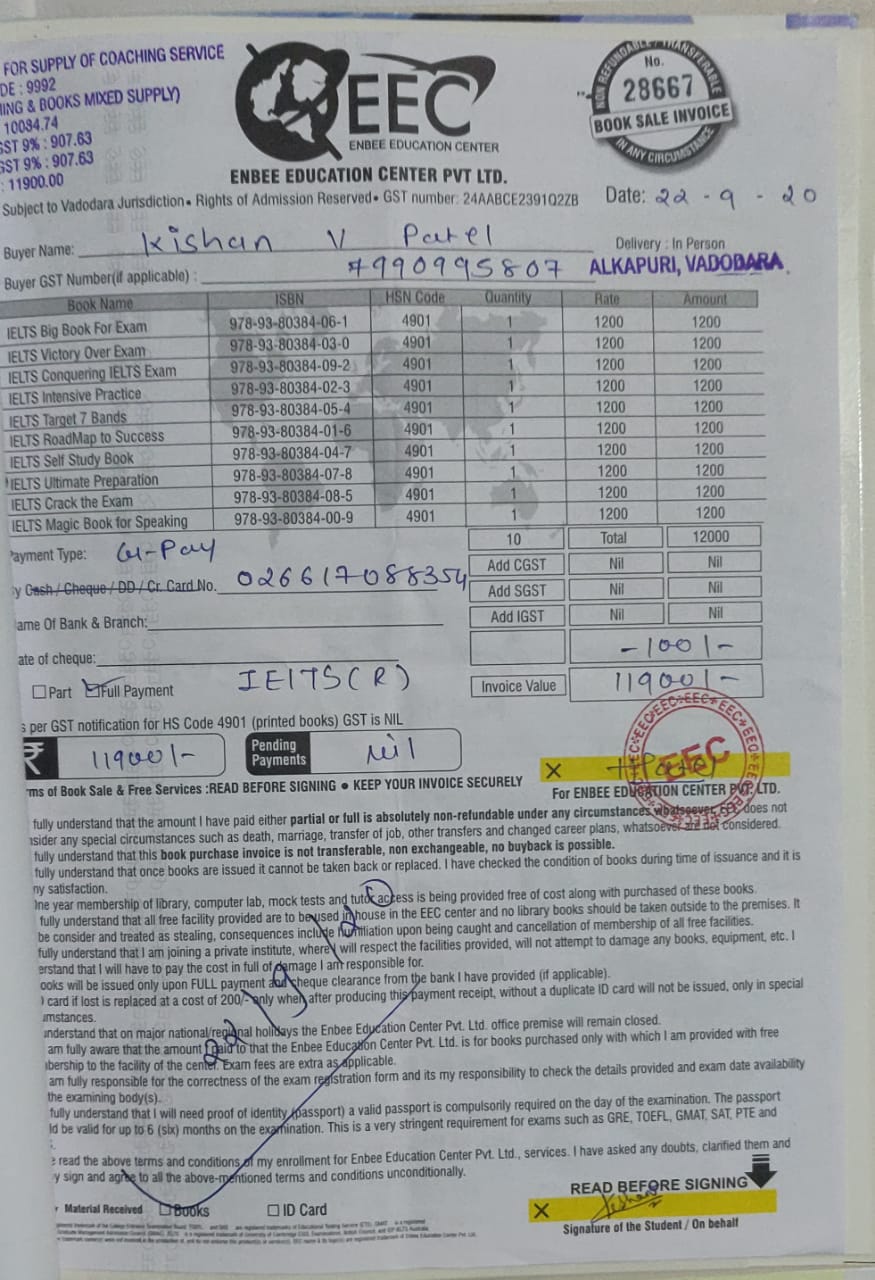 FOR SUPPLY OF COACHING SERVICE
DE : 9992
ING & BOOKS MIXED SUPPLY)
10084.74
GST 9% : 907.63
GST 9% : 907.63
: 11900.00
EEC
ENBEE EDUCATION CENTER
ENBEE EDUCATION CENTER PVT LTD.
NON REFUNDABLE / TRANSFERABLE
No.
28667
BOOK SALE INVOICE
IN ANY CIRCUMSTANCE
Subject to Vadodara Jurisdiction • Rights of Admission Reserved • GST number: 24AABCE2391Q2ZB
Date: 22 - 9 - 20
Buyer Name: Kishan V Patel
Delivery : In Person
Buyer GST Number(if applicable) : 7990995807
ALKAPURI, VADODARA.
Book Name ISBN HSN Code Quantity Rate Amount
IELTS Big Book For Exam 978-93-80384-06-1 4901 1 1200 1200
IELTS Victory Over Exam 978-93-80384-03-0 4901 1 1200 1200
IELTS Conquering IELTS Exam 978-93-80384-09-2 4901 1 1200 1200
IELTS Intensive Practice 978-93-80384-02-3 4901 1 1200 1200
IELTS Target 7 Bands 978-93-80384-05-4 4901 1 1200 1200
IELTS RoadMap to Success 978-93-80384-01-6 4901 1 1200 1200
IELTS Self Study Book 978-93-80384-04-7 4901 1 1200 1200
IELTS Ultimate Preparation 978-93-80384-07-8 4901 1 1200 1200
IELTS Crack the Exam 978-93-80384-08-5 4901 1 1200 1200
IELTS Magic Book for Speaking 978-93-80384-00-9 4901 1 1200 1200
10 Total 12000
Payment Type: G-Pay
Add CGST Nil Nil
y Cash / Cheque / DD / Cr. Card No. 026617088354
Add SGST Nil Nil
ame Of Bank & Branch:
Add IGST Nil Nil
ate of cheque:
- 100/-
Part Full Payment IELTS(R)
Invoice Value 11900/-
s per GST notification for HS Code 4901 (printed books) GST is NIL
₹ 11900/- Pending Payments Nil
EEC
For ENBEE EDUCATION CENTER PVT. LTD.
rms of Book Sale & Free Services :READ BEFORE SIGNING • KEEP YOUR INVOICE SECURELY
fully understand that the amount I have paid either partial or full is absolutely non-refundable under any circumstances whatsoever, EEC does not
nsider any special circumstances such as death, marriage, transfer of job, other transfers and changed career plans, whatsoever are not considered.
fully understand that this book purchase invoice is not transferable, non exchangeable, no buyback is possible.
fully understand that once books are issued it cannot be taken back or replaced. I have checked the condition of books during time of issuance and it is
ny satisfaction.
One year membership of library, computer lab, mock tests and tutor access is being provided free of cost along with purchased of these books.
fully understand that all free facility provided are to be used in house in the EEC center and no library books should be taken outside to the premises. It
be consider and treated as stealing, consequences include humiliation upon being caught and cancellation of membership of all free facilities.
fully understand that I am joining a private institute, where I will respect the facilities provided, will not attempt to damage any books, equipment, etc. I
erstand that I will have to pay the cost in full of damage I am responsible for.
ooks will be issued only upon FULL payment and cheque clearance from the bank I have provided (if applicable).
) card if lost is replaced at a cost of 200/- only when after producing this payment receipt, without a duplicate ID card will not be issued, only in special
umstances.
understand that on major national/regional holidays the Enbee Education Center Pvt. Ltd. office premise will remain closed.
am fully aware that the amount I paid to that the Enbee Education Center Pvt. Ltd. is for books purchased only with which I am provided with free
nbership to the facility of the center. Exam fees are extra as applicable.
am fully responsible for the correctness of the exam registration form and its my responsibility to check the details provided and exam date availability
the examining body(s).
fully understand that I will need proof of identity (passport) a valid passport is compulsorily required on the day of the examination. The passport
ld be valid for up to 6 (six) months on the examination. This is a very stringent requirement for exams such as GRE, TOEFL, GMAT, SAT, PTE and
e read the above terms and conditions of my enrollment for Enbee Education Center Pvt. Ltd., services. I have asked any doubts, clarified them and
y sign and agree to all the above-mentioned terms and conditions unconditionally.
READ BEFORE SIGNING
Material Received Books ID Card
Kishan
Signature of the Student / On behalf